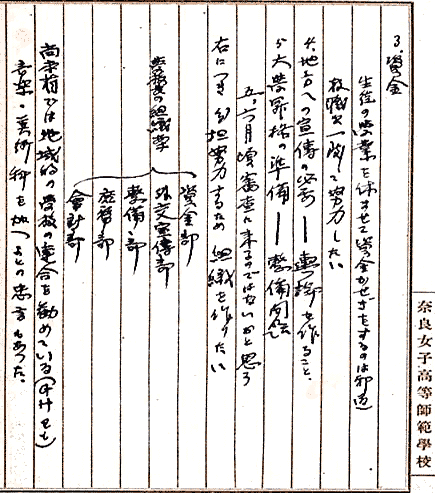 3. 資金
生徒の学業を休ませて資金かせぎをするのは邪道
教職一関して努力したい
4. 地方への宣傳の必要 — 輿論を作ること、
5. 大学昇格の準備 — 整備関係
五、六月頃審査に来るのではないかと思ふ
右につき分担努力するため組織を作りたい
学校の組織案
資金部
外交宣傳部
整備部
庶務部
會計部
尚本省では地域的の学校の連合を勧めている
音楽・美術科を加へよとの忠言もあった。
奈良女子高等師範學校